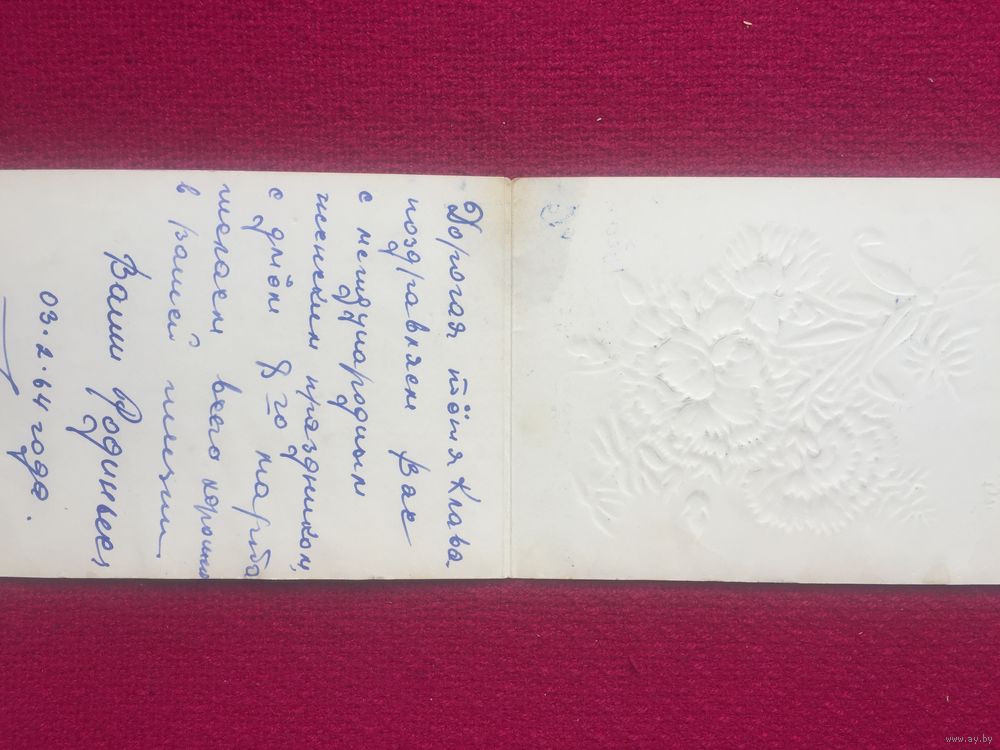 Дорогая тётя Клава
поздравляем Вас
с международным
женским праздником,
с днём 8-го марта
желаем всего хорошего
в Вашей жизни.
Ваши
03.2.64 года.
www.ay.by